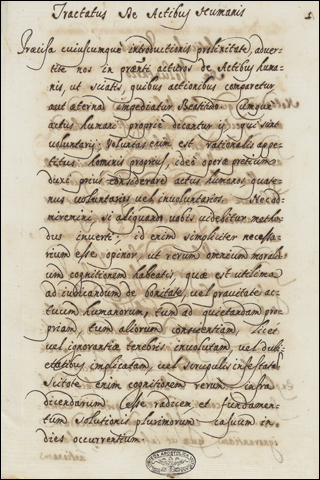 Tractatus De Actibus Humanis
Præcisa cuiuscumque introductionis prolixitate, adver-
tite nos in præsnti acturos de Actibus huma-
nis, ut sciatis, quibus actionibus comparetur
aut æterna impediatur Beatitudo. Cumque
actus humani proprie dicantur ij, qui sint
voluntarij; Voluntas enim est rationalis appe-
titus hominis proprius, ideo operæ pretium
duxi prius considerare actus humanos, quate-
nus voluntarios vel involuntarios. Nec ad-
miremini, si aliquando vobis videbitur metho-
dus inverti; id enim simpliciter necessa-
rium esse opinor, ut rerum omnium moral-
ium cognitionem habeatis, quæ est utilissima
ad iudicandum de bonitate, vel pravitate ac-
tuum humanorum, tum ad quietandam pro-
priam, tum aliorum conscientiam, licet
vel ignorantiæ tenebris involutam, vel dubi-
etatibus implicatam, vel scrupulis infestatam.
Scitote enim cognitionem rerum infra
dicendarum esse radicem et fundamen-
tum solutionis plurimorum casuum in
dies occurrentium.